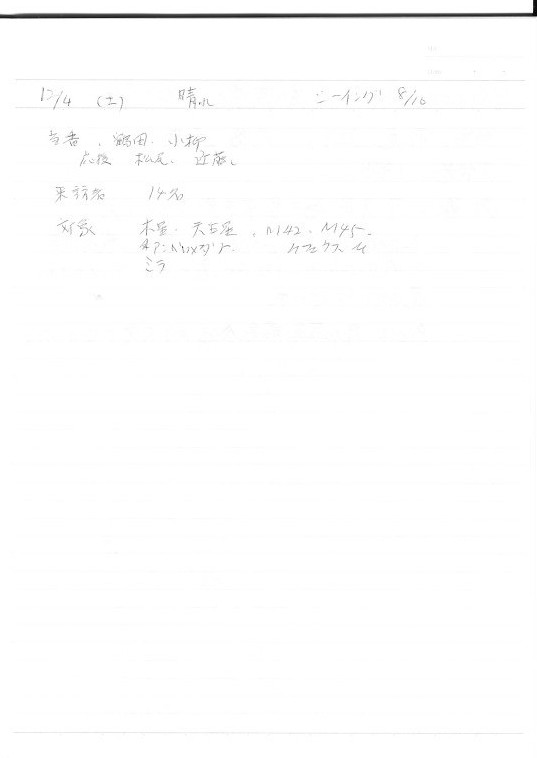 12/4 (土) 晴れ シーイング 8/10
当番、鶴田、小柳
応援 松尾、近藤、
来訪者 14名
対象 木星、天王星、M42、M45、
ケフェウス μ
ミラ